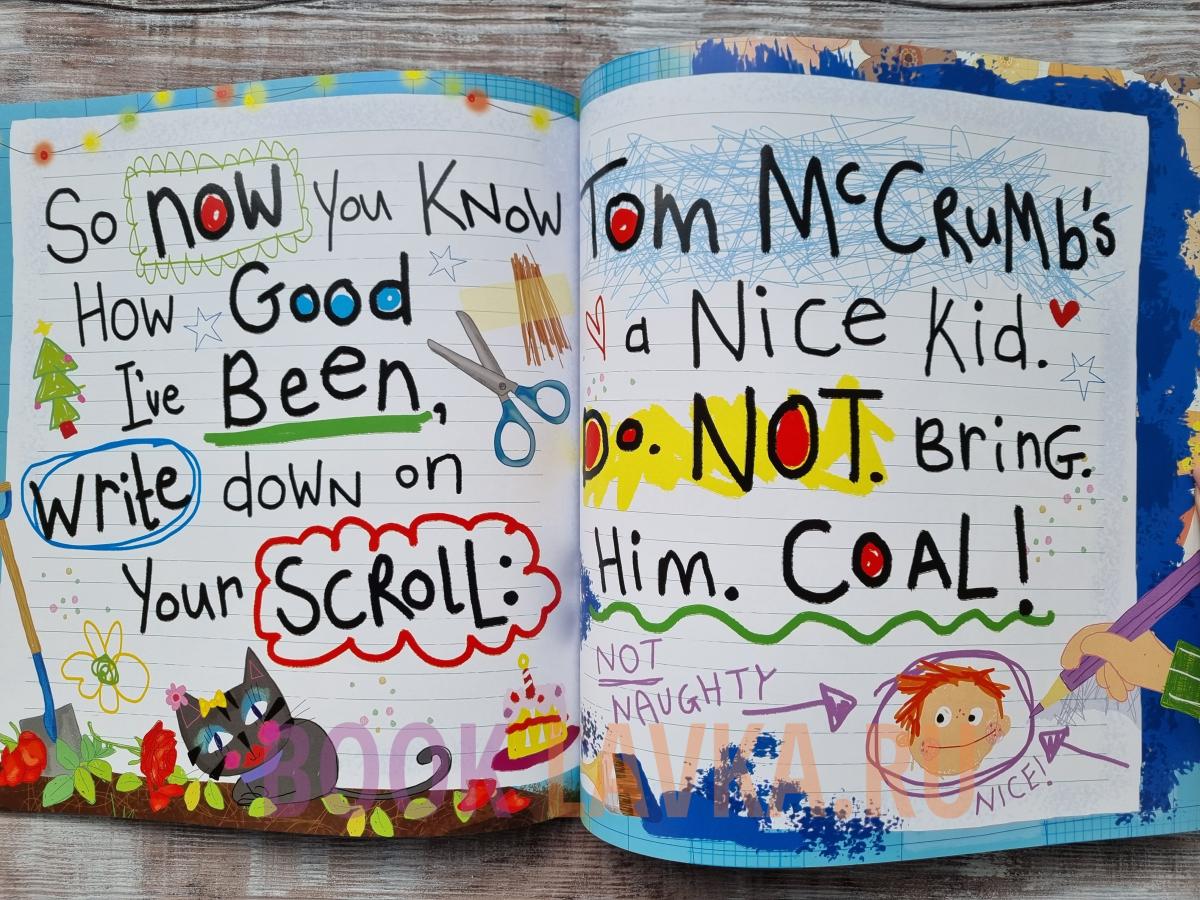 So now You Know
How Good
I've Been,
write down on
Your SCROLL:
Tom McCRuMb's
a Nice Kid.
Do. NOT. BrinG.
Him. COAL!
NOT
NAUGHTY
NICE!
BOOK-LAVKA.RU